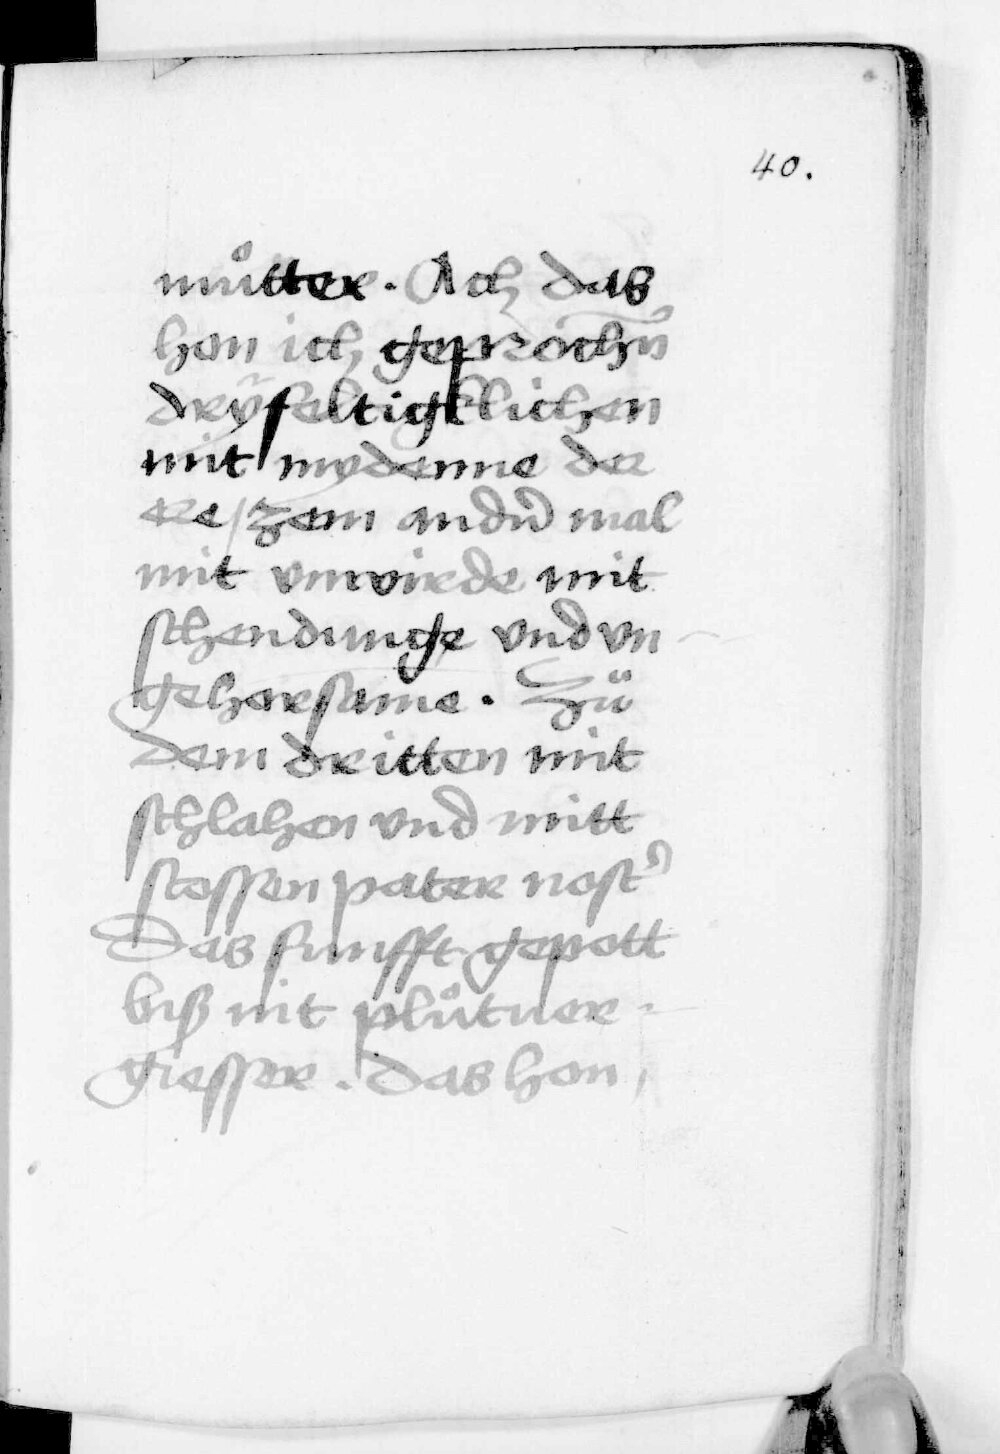 40.
muͦtter. Ach das
hon ich geprochn̄
dryfeltigklichen
mit mydenne der
ere / zem andn̄ mal
mit vnwirde mit
schendunge vnd vn
gehorsame. Zuͤ
dem dritten mit
schlahen vnd mitt
stossen pater nostʾ
Das funfft gepott
biß nit pluͦtuer
giesser. das hon